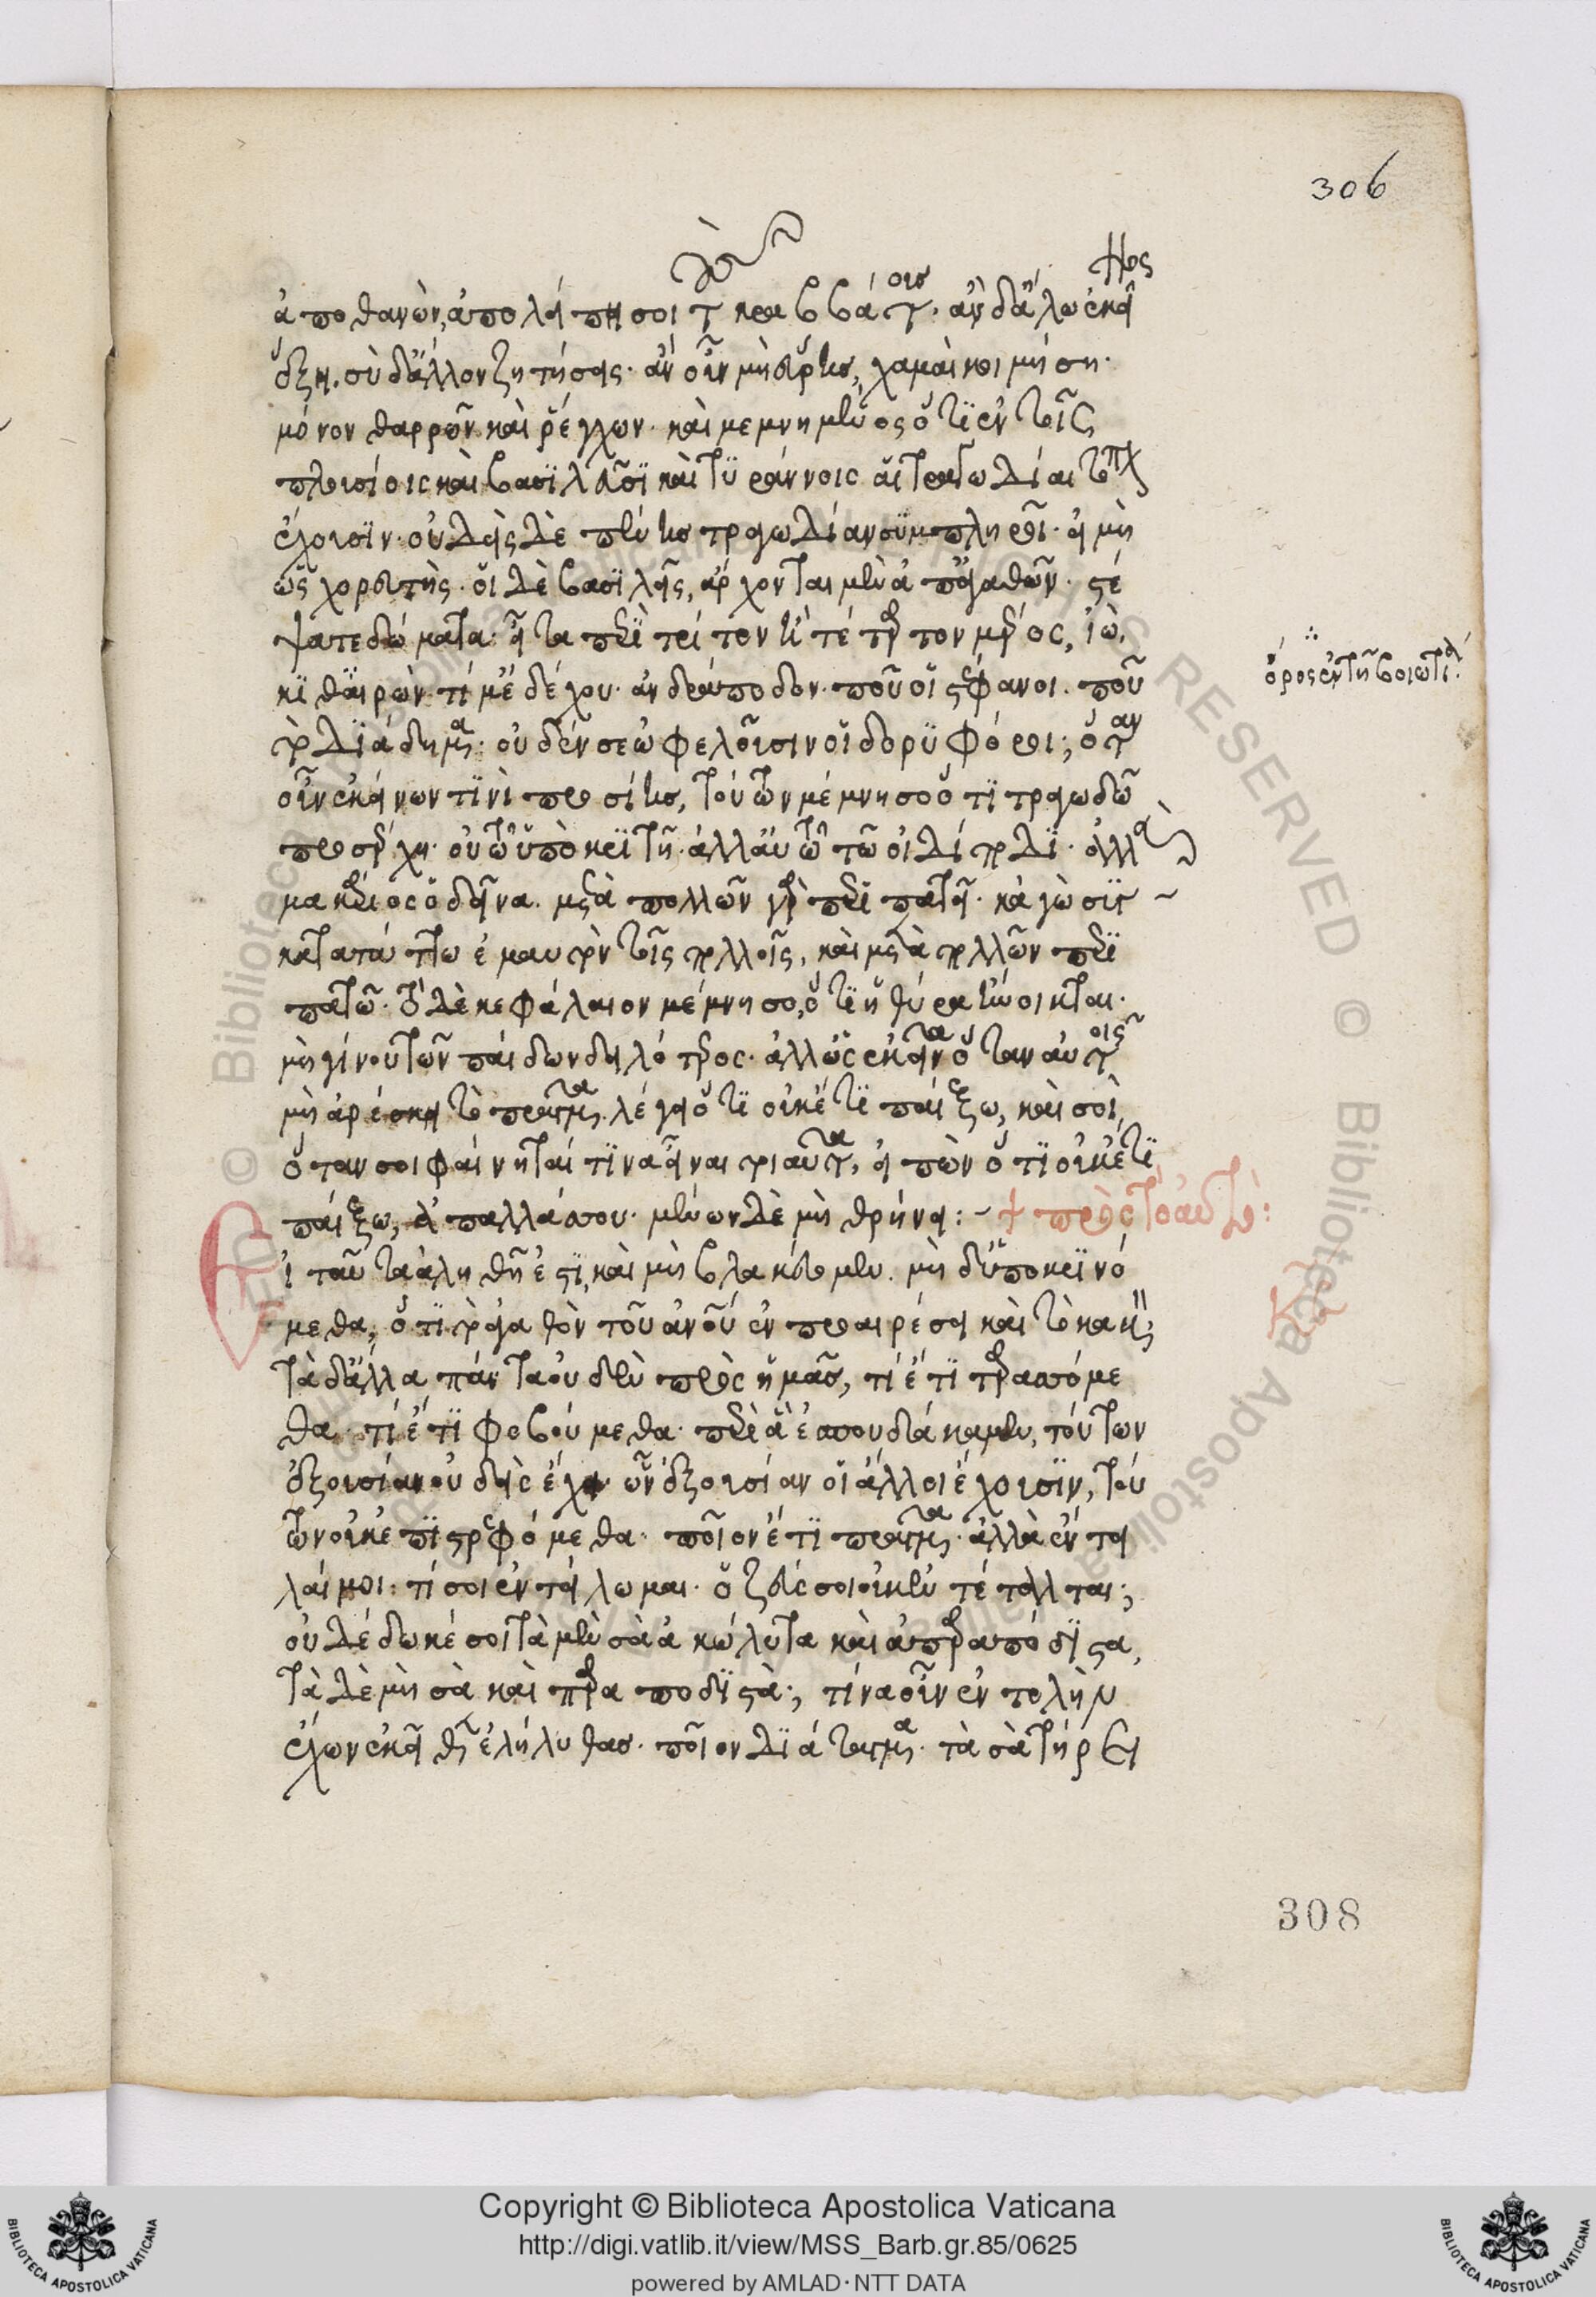 306
ἀποθανὼν, ἀπολείπη σοι τὸν κραββάτον. ἂν δ' ἄλλω ἐκεῖνος
ἕξει. σὺ δ' ἄλλον ζητήσεις. ἂν οὖν μὴ εὕρης, χαμαὶ κοιμήση.
μόνον θαρρῶν καὶ ῥέγχων. καὶ μεμνημένος ὅτι ἐν τοῖς
πλουσίοις καὶ βασιλεῦσι καὶ τυράννοις αἱ τραγωδίαι τόπον
ἔχουσιν. οὐδεὶς δὲ πένης τραγωδίαν συμπληροῖ. εἰ μὴ
ὡς χορευτὴς. οἱ δὲ βασιλεῖς, ἄρχονται μὲν ἀπ' ἀγαθῶν. στέ
ψατε δώματα. εἶτα περὶ τρίτον ἢ τέταρτον μέρος, ἰὼ,
κιθαιρὼν τί μ' ἐδέχου. ἀνδράποδον. ποῦ οἱ στέφανοι. ποῦ
τὸ διάδημα. οὐδέν σε ὠφελοῦσιν οἱ δορυφόροι; ὅταν
οὖν ἐκείνων τινὶ προσίης, τούτων μέμνησο ὅτι τραγωδῶ
προσέρχη. οὐ τῶ ὑποκριτῆ. ἀλλ' αὐτῶ τῶ οἰδίποδι. ἀλλὰ
μακάριος ὁ δεῖνα. μετὰ πολλῶν γὰρ περιπατεῖ. κἀγὼ συγ
κατατάττω ἐμαυτὸν τοῖς πολλοῖς, καὶ μετὰ πολλῶν περι
πατῶ. τὸ δὲ κεφάλαιον μέμνησο, ὅτι ἡ θύρα ἤνοικται.
μὴ γίνου τῶν παίδων δειλότερος. ἀλλ' ὡς ἐκεῖνα ὅταν αὐτοῖς
μὴ ἀρέσκη τὸ πρᾶγμα. λέγει ὅτι οὐκέτι παίξω, καὶ σοὶ,
ὅταν σοι φαίνηταί τινα εἶναι τοιαῦτα, εἰπὼν ὅτι οὐκέτι
παίξω, ἀπαλλάσσου. μένων δὲ μὴ θρήνει:~ + πρὸς τὸ αὐτὸ:
Εἰ ταῦτα ἀληθῆ ἐστι, καὶ μὴ βλακεύομεν. μὴ δ' ὑποκρινό
μεθα, ὅτι τὸ ἀγαθὸν τοῦ ἀνοῦ ἐν προαιρέσει καὶ τὸ κακὸν;
τὰ δ' ἄλλα πάντα οὐδὲν πρὸς ἡμᾶς, τί ἔτι ταρασσόμε
θα. τί ἔτι φοβούμεθα. περὶ ἃ ἐσπουδάκαμεν, τούτων
ἐξουσίαν οὐδεὶς ἔχει. ὧν ἐξουσίαν οἱ ἄλλοι ἔχουσιν, τού
των οὐκ ἐπιστρεφόμεθα. ποῖον ἔτι πρᾶγμα. ἀλλὰ ἔντει
λαί μοι: τί σοι ἐντείλωμαι. ὁ ζεύς σοι οὐκ ἐντέταλται;
οὐ δέδωκέ σοι τὰ μὲν σὰ ἀκώλυτα καὶ ἀπαραπόδιστα,
τὰ δὲ μὴ σὰ καὶ παραποδιστὰ; τίνα οὖν ἐντολὴν
ἔχων ἐκεῖθεν ἐλήλυθας. ποῖον διάταγμα. τὰ σὰ τήρει
ὄρος ἐν τῆ βοιωτία
308
Copyright © Biblioteca Apostolica Vaticana
http://digi.vatlib.it/view/MSS_Barb.gr.85/0625
powered by AMLAD·NTT DATA